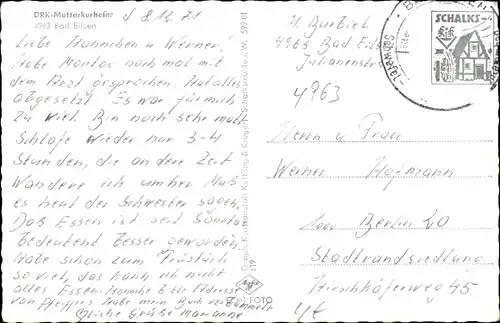 DRK-Mütterkurheim
4963 Bad Eilsen
d 8.12.71
Liebe Hannchen u Werner!
Habe Montag noch mal mit
dem Arzt gesprochen. Hat alles
abgesetzt Es war für mich
zu viel. Bin noch sehr matt
Schlafe wieder nur 3-4
Stunden, die andere Zeit
Wandere ich umher Muß
es heut der Schwester sagen,
Das Essen ist seit Sonntag
bedeutent besser geworden,
Habe schon zum Früstück
so viel, das kann ich nicht
alles Essen. Hannchen bitte Adresse
von Pfeiffers Habe mein Buch verbummelt
Herzliche Grüße Marianne
Cramers Kunstanstalt KG
Agfa
FOTO
4963 Bad Eilsen
Julianenstr
4963
SCHALKS-
Herrn u Frau
Werner Hofmann
1000 Berlin 20
Stadtrandsiedlung
Hirschhöferweg 45